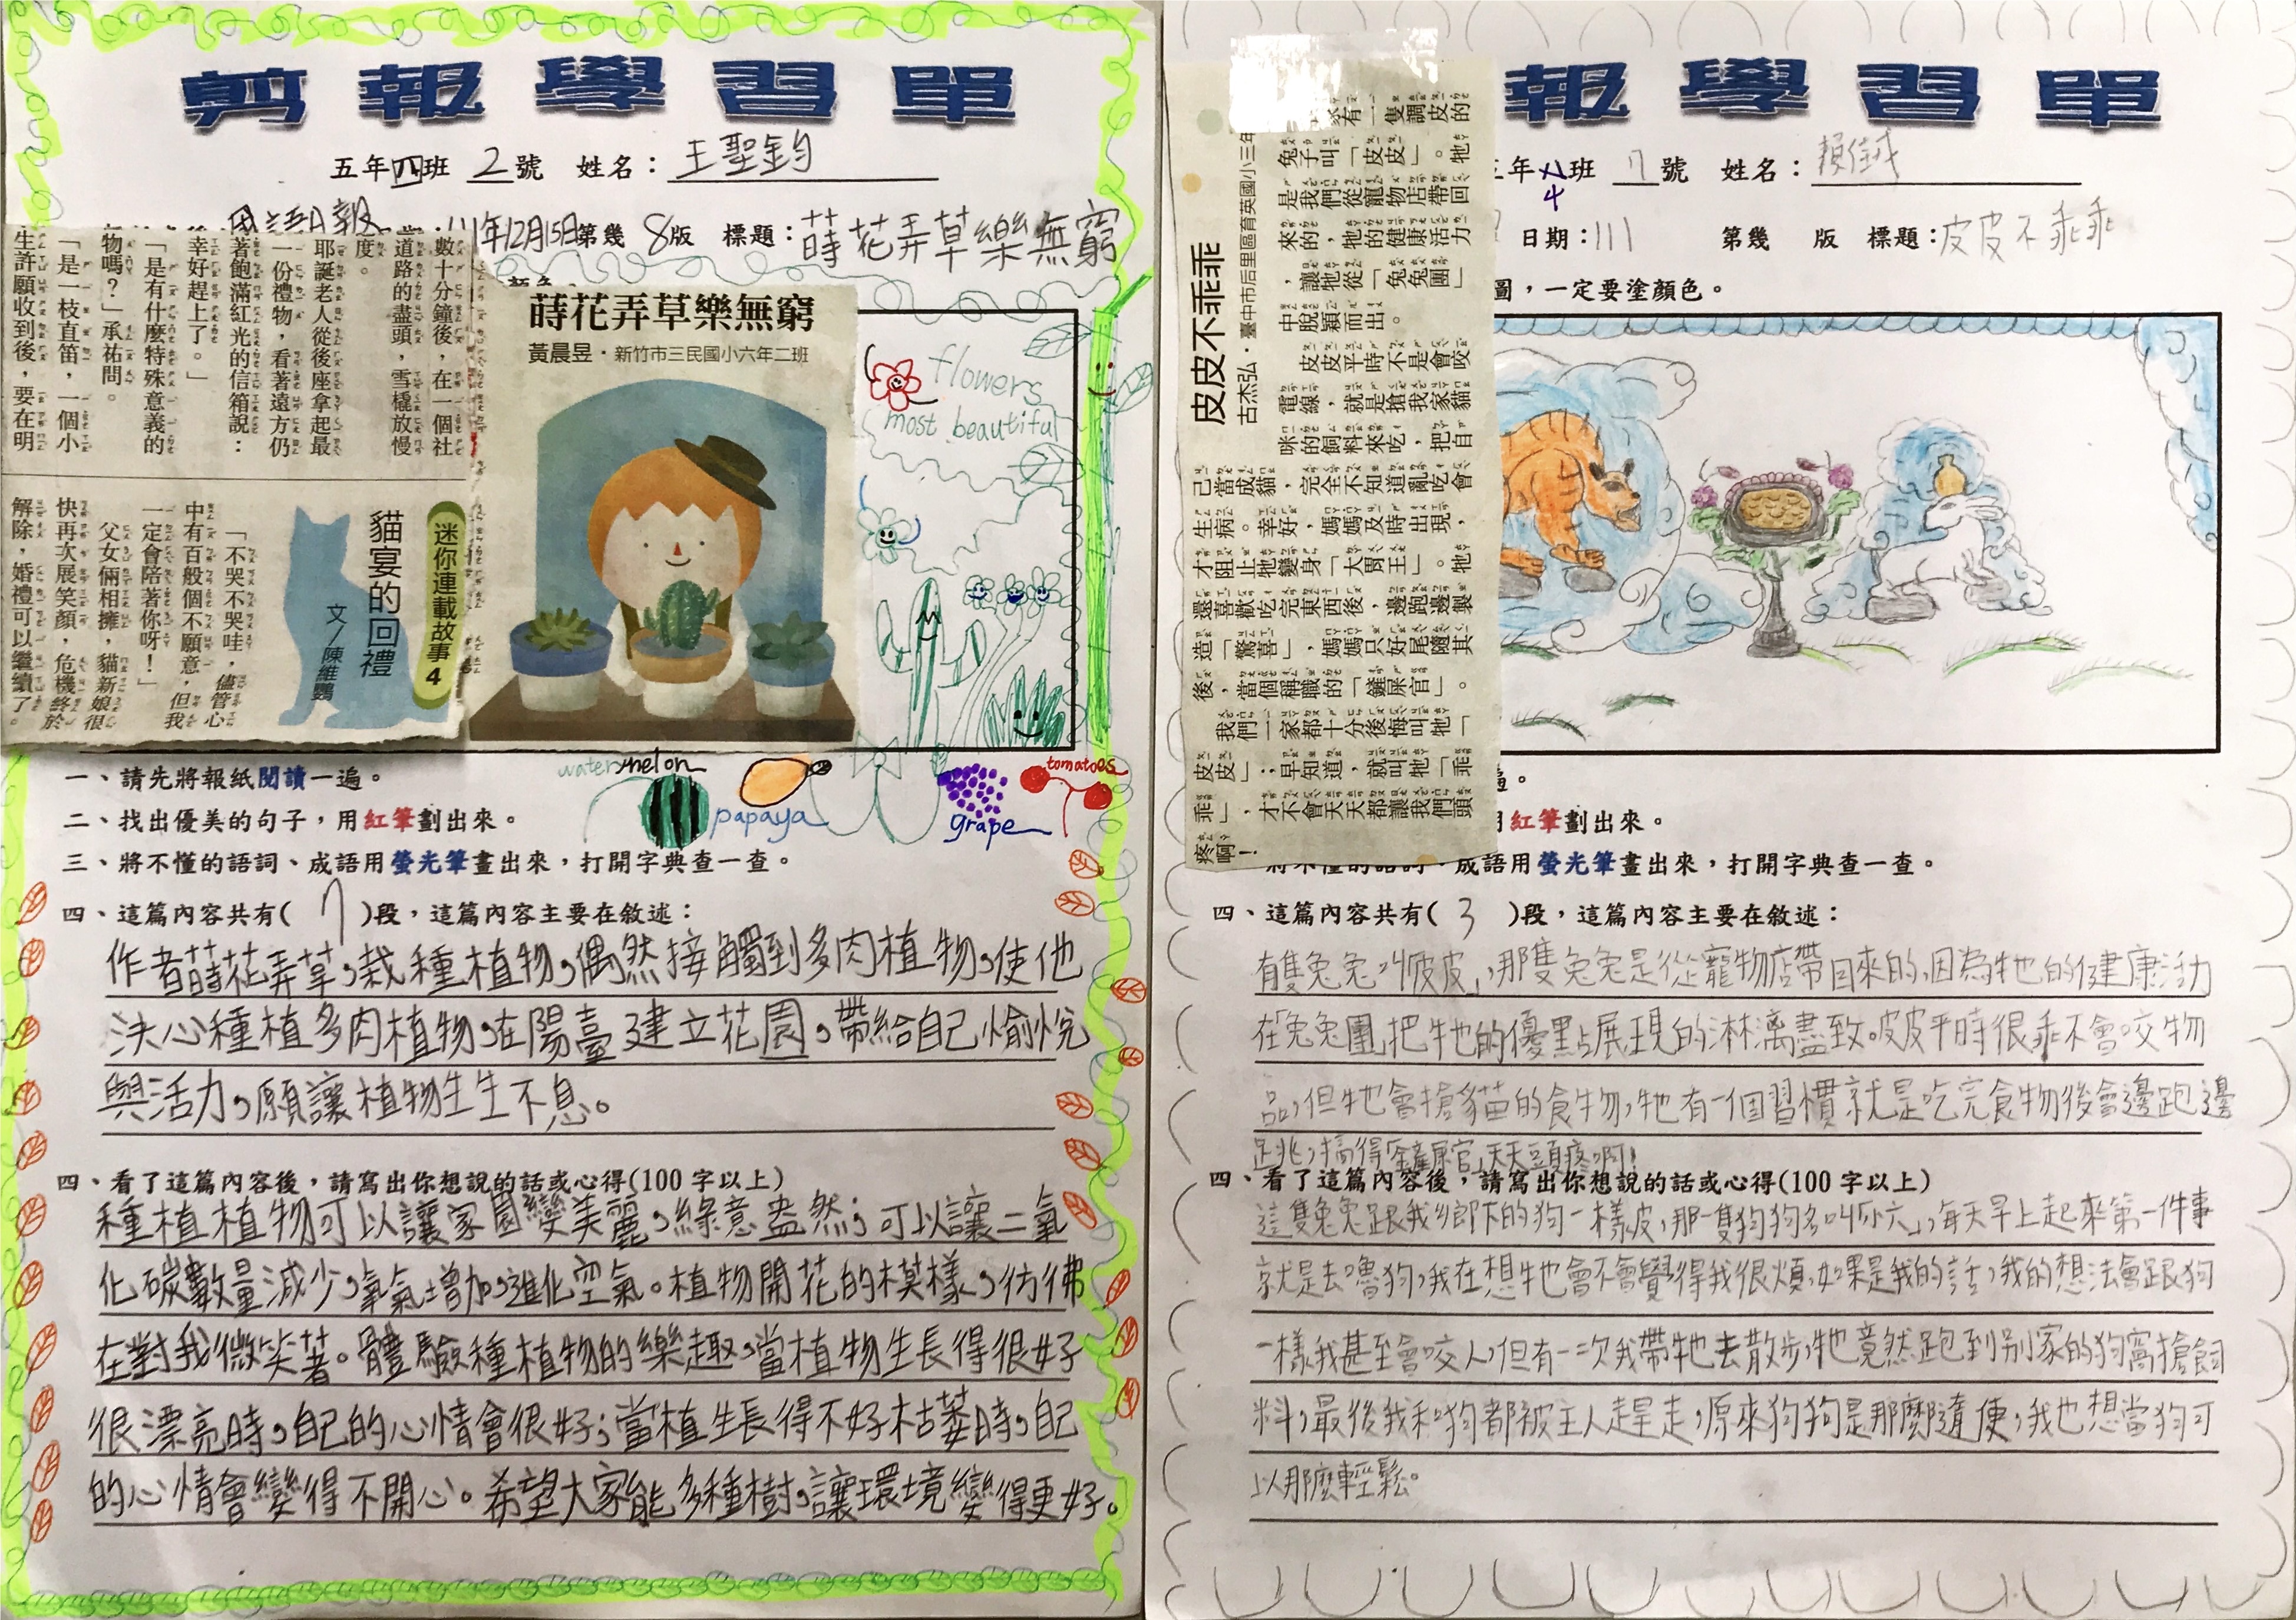 剪報學習單
五年四班 2號 姓名：王聖鈞
國語日報 111年12月15日第幾 8版 標題：蒔花弄草樂無窮
數十分鐘後，在一個社
道路的盡頭，雪橇放慢
度。
耶誕老人從後座拿起最
一份禮物，看著遠方仍
著飽滿紅光的信箱說：
幸好趕上了。」
「是有什麼特殊意義的
物嗎？」承祐問。
「是一枝直笛，一個小
生許願收到後，要在明
迷你連載故事4
貓宴的回禮
文／陳維鸚
「不哭不哭哇，儘管心
中有百般個不願意，但我
一定會陪著你呀！」
父女倆相擁，貓新娘很
快再次展笑顏，危機終於
解除，婚禮可以繼續了。
蒔花弄草樂無窮
黃晨昱·新竹市三民國小六年二班
flowers
most beautiful
watermelon
papaya
grape
tomatoes
一、請先將報紙閱讀一遍。
二、找出優美的句子，用紅筆劃出來。
三、將不懂的語詞、成語用螢光筆畫出來，打開字典查一查。
四、這篇內容共有( 7 )段，這篇內容主要在敘述：
作者蒔花弄草，栽種植物，偶然接觸到多肉植物，使他
決心種植多肉植物，在陽臺建立花園，帶給自己愉悅
與活力，願讓植物生生不息。
四、看了這篇內容後，請寫出你想說的話或心得(100字以上)
種植植物可以讓家園變美麗，綠意盎然；可以讓二氧
化碳數量減少，氧氣增加，進化空氣。植物開花的模樣，彷彿
在對我微笑著。體驗種植物的樂趣，當植物生長得很好
很漂亮時，自己的心情會很好；當植生長得不好枯萎時，自己
的心情會變得不開心。希望大家能多種樹，讓環境變得更好。
報學習單
年4班 7號 姓名：賴
日期：111 第幾 版 標題：皮皮不乖乖
圖，一定要塗顏色。
皮皮不乖乖
古杰弘·臺中市后里區育英國小三年
家有一隻調皮的
兔子叫「皮皮」。牠
是我們從寵物店帶回
來的，牠的健康活力
，讓牠從「兔兔團」
中脫穎而出。
皮皮平時不是會咬
電線，就是搶我家貓
咪的飼料來吃，把自
己當成貓，完全不知道亂吃會
生病。幸好，媽媽及時出現，
才阻止牠變身「大胃王」。牠
還喜歡吃完東西後，邊跑邊製
造「驚喜」，媽媽只好尾隨其
後，當個稱職的「鏟屎官」。
我們一家都十分後悔叫牠「
皮皮」；早知道，就叫牠「乖
乖」，才不會天天都讓我們頭
疼啊！
遍。
用紅筆劃出來。
將不懂的語詞、成語用螢光筆畫出來，打開字典查一查。
四、這篇內容共有( 3 )段，這篇內容主要在敘述：
有隻兔兔叫「皮皮」，那隻兔兔是從寵物店帶回來的，因為牠的健康活力
在「兔兔團」把牠的優點展現的淋漓盡致。皮皮平時很乖不會咬物
品，但牠會搶貓的食物，牠有一個習慣就是吃完食物後會邊跑邊
跳，搞得「鏟屎官」天天頭疼啊！
四、看了這篇內容後，請寫出你想說的話或心得(100字以上)
這隻兔兔跟我鄉下的狗一樣皮，那一隻狗狗名叫「小六」，每天早上起來第一件事
就是去嚕狗，我在想牠會不會覺得我很煩，如果是我的話，我的想法會跟狗
一樣我甚至會咬人，但有一次我帶牠去散步，牠竟然跑到別家的狗窩搶飼
料，最後我和狗都被主人趕走，原來狗狗是那麼隨便，我也想當狗可
以那麼輕鬆。